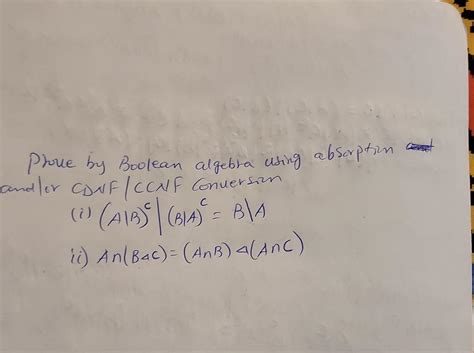 Prove by Boolean algebra using absorption
and/or CDNF/CCNF Conversion
(i) (A\B)ᶜ | (B\A)ᶜ = B\A
ii) A∩(B△C) = (A∩B) △ (A∩C)